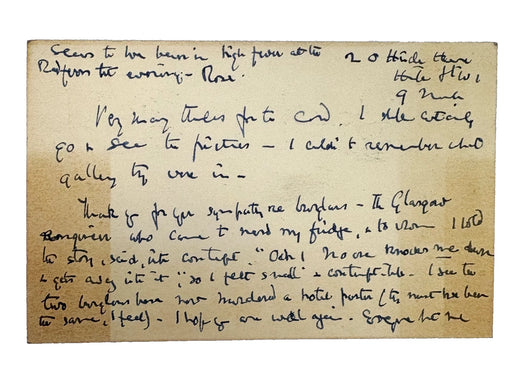 Seems to have been in high fever at the
Redfern the evening – Rose.
20 Hinde House
Hinde St W1
9 March
Very many thanks for the card. I shall certainly
go & see the pictures – I couldn't remember what
gallery they were in –
Thank you for your sympathy re burglars – the Glasgow
engineer who came to mend my fridge, & to whom I told
the story, said, with contempt, "Och! No one knocks me down
& gets away with it"; so I felt small & contemptible. I see the
two burglars have now murdered a hotel porter (they must have been
the same, I feel) – I hope you are well again. Everyone but me